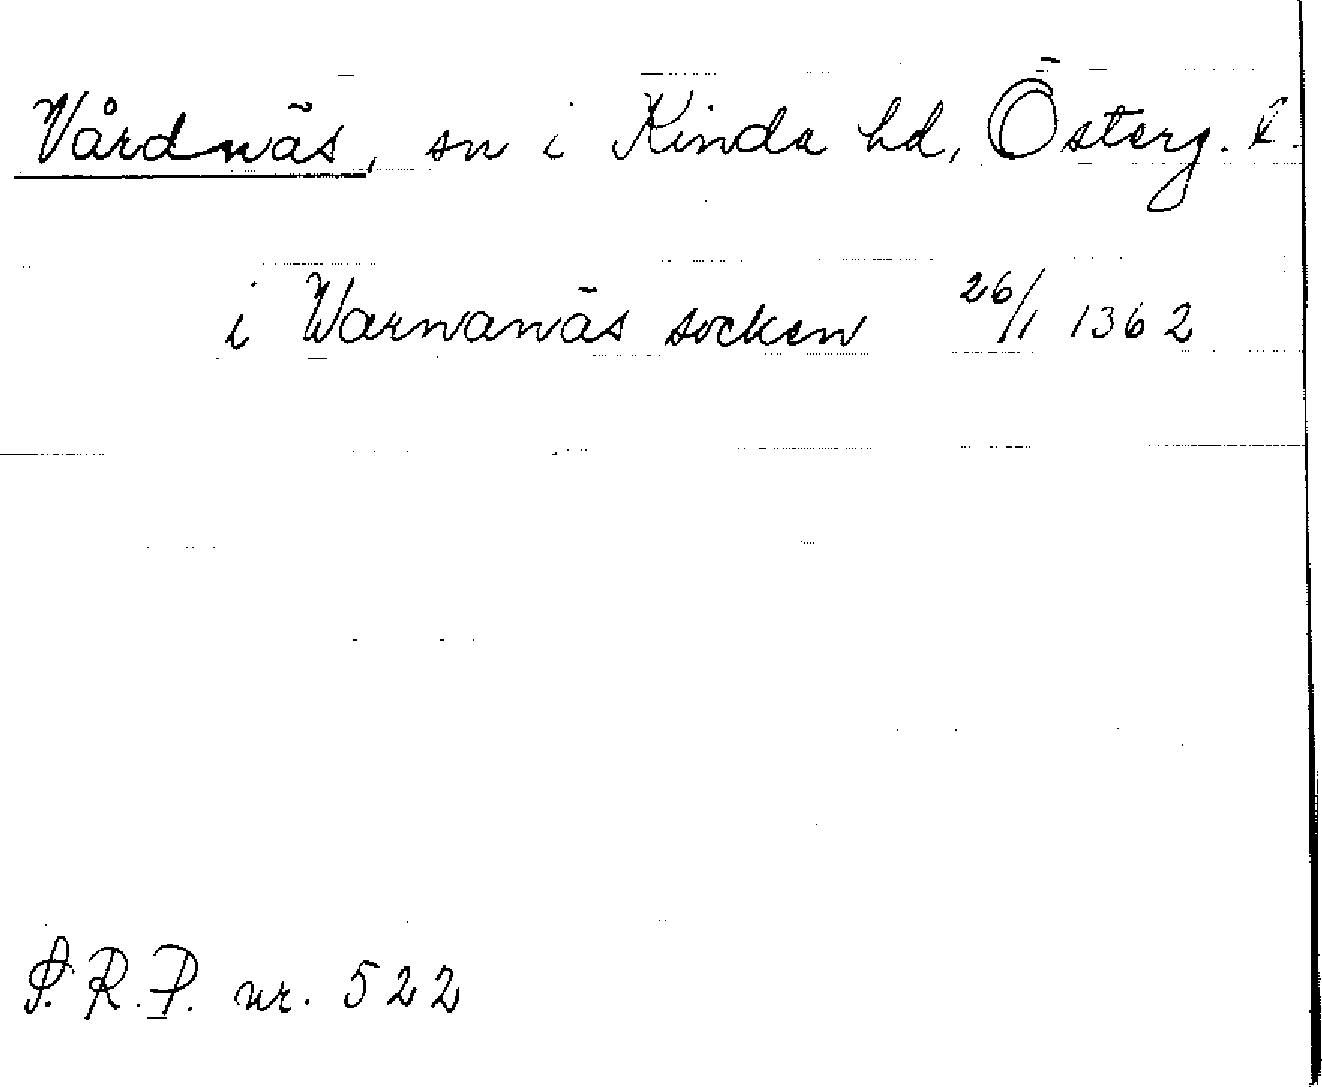 Vårdnäs, sn i Kinda hd, Österg. l.
i Warnanäs socken 26/1 1362
S.R.P. nr. 522